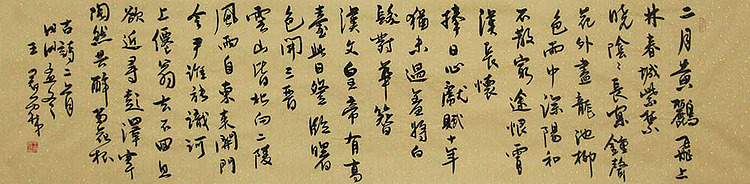 二月黃鸝飛上
林春城紫禁
曉陰々長樂鐘聲
花外盡龍池柳
色雨中深陽和
不散窮途恨霄
漢長懷
捧日心獻賦十年
猶未遇羞將白
髮對華簪
漢文皇帝有高
臺此日登臨曙
色開三晉
雲山皆北向二陵
風雨自東來關門
令尹誰能識河
上僊翁去不回且
欲近尋彭澤宰
陶然共醉菊花杯
古詩二首